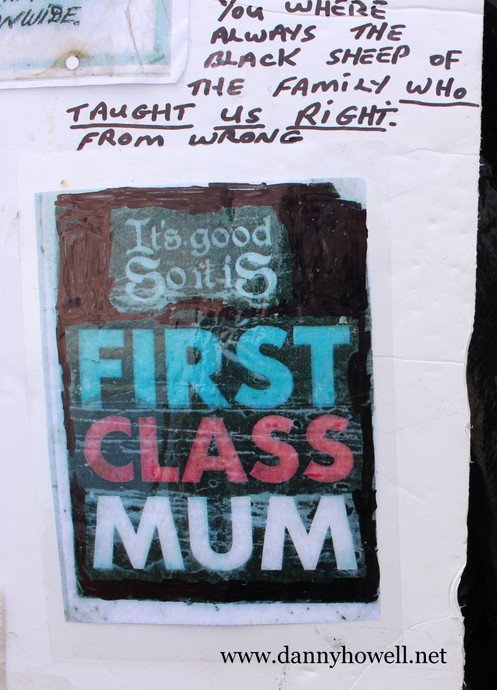 NWIDE.
YOU WHERE
ALWAYS THE
BLACK SHEEP OF
THE FAMILY WHO
TAUGHT US RIGHT.
FROM WRONG
It's good
So it iS
FIRST
CLASS
MUM
www.dannyhowell.net